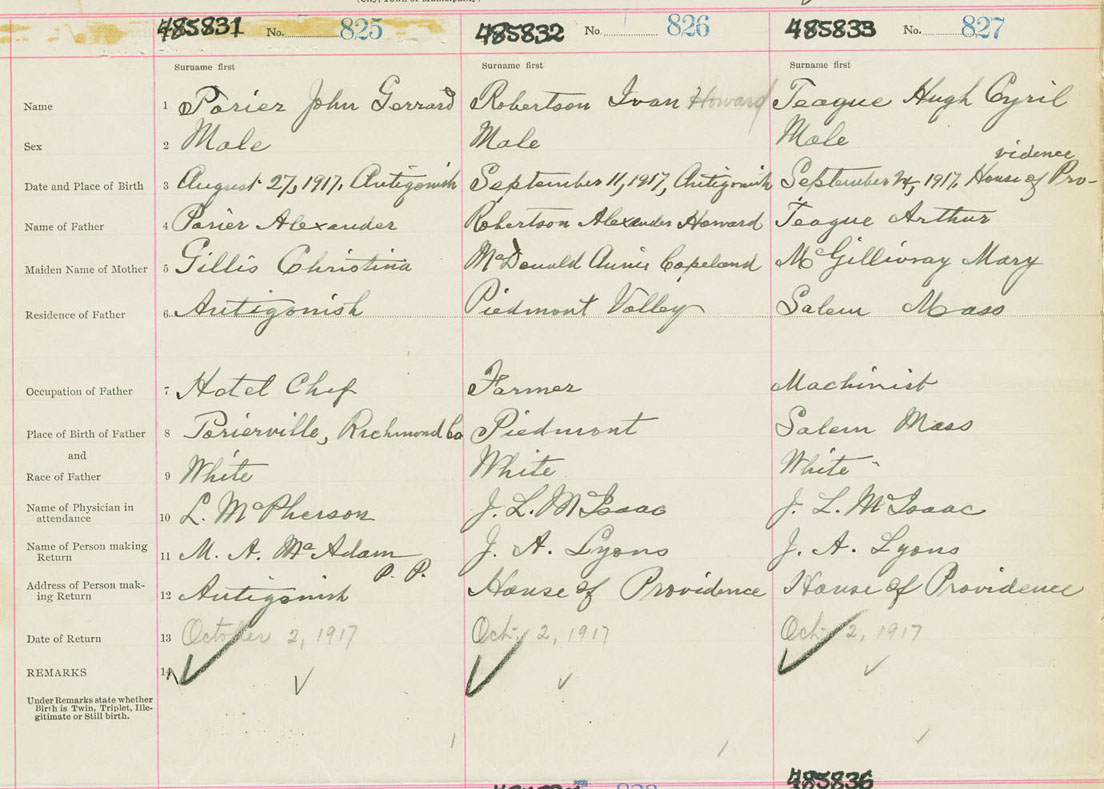 (City, Town or Municipality)
485831 No. 825 485832 No. 826 485833 No. 827
Surname first Surname first Surname first
Name 1 Porier John Gerrard Robertson Ivan Howard Teague Hugh Cyril
Sex 2 Male Male Male
vidence
Date and Place of Birth 3 August 27, 1917, Antigonish September 11, 1917, Antigonish September 24, 1917, House of Pro-
Name of Father 4 Porier Alexander Robertson Alexander Howard Teague Arthur
Maiden Name of Mother 5 Gillis Christina McDonald Annie Copeland McGillivray Mary
Residence of Father 6 Antigonish Piedmont Valley Salem Mass
Occupation of Father 7 Hotel Chef Farmer Machinist
Place of Birth of Father 8 Porierville, Richmond Co Piedmont Salem Mass
and
Race of Father 9 White White White
Name of Physician in
attendance 10 L. McPherson J. L. McIsaac J. L. McIsaac
Name of Person making
Return 11 M. A. McAdam J. A. Lyons J. A. Lyons
P. P.
Address of Person mak-
ing Return 12 Antigonish House of Providence House of Providence
Date of Return 13 October 2, 1917 Oct. 2, 1917 Oct. 2, 1917
REMARKS 14
Under Remarks state whether
Birth is Twin, Triplet, Ille-
gitimate or Still birth.
485836